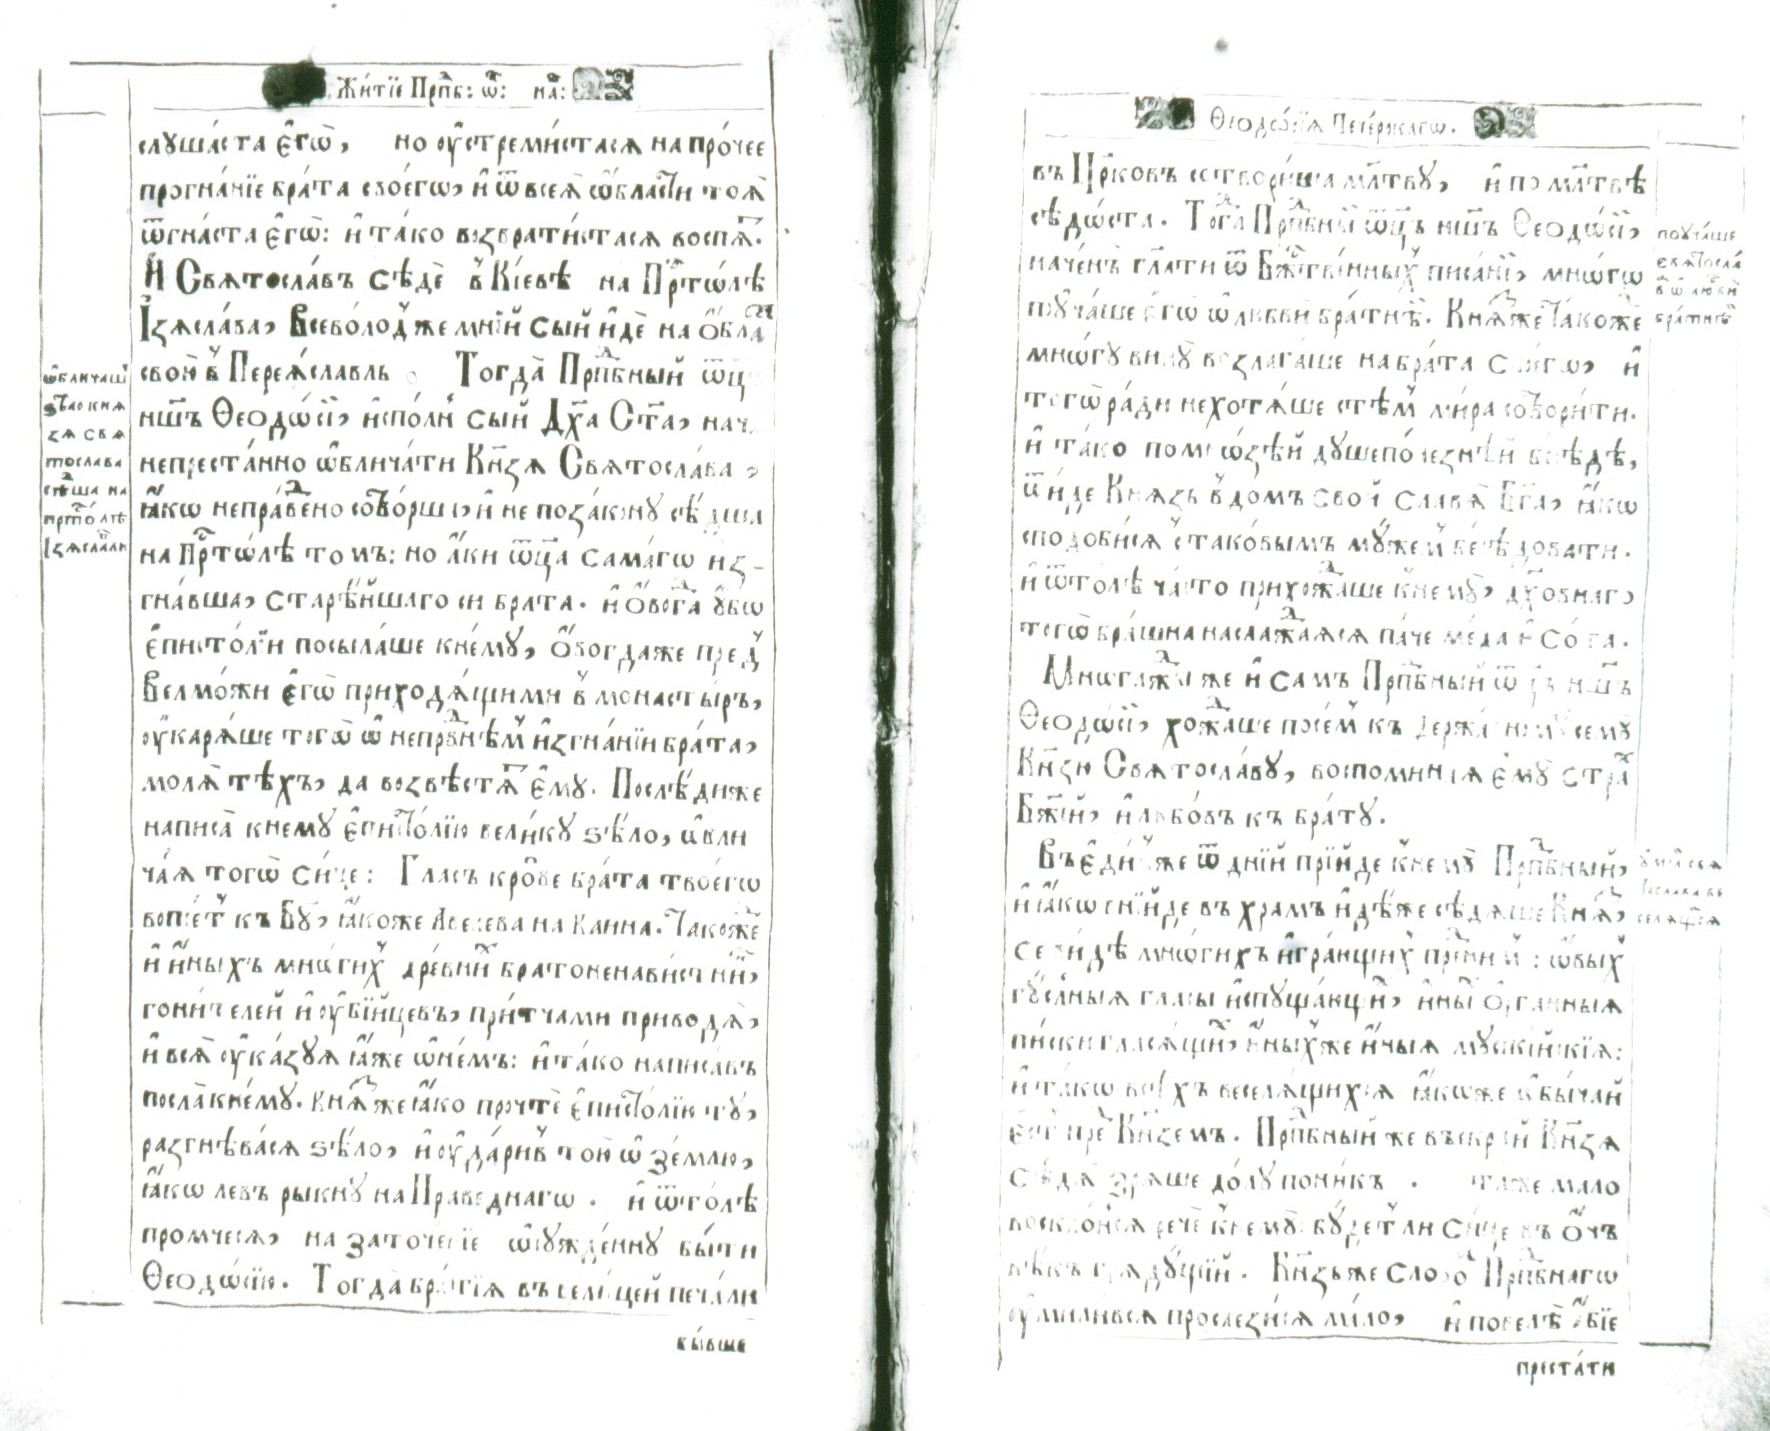 Житїе Прпб: ѿ: на:
слушаста єгѡ, но оустремистася на прочее
прогнанїе брата своегѡ, и ѿ всея ѡбласти тоя
ѿгнаста єгѡ: и тако возвратистася воспят.
И Святославъ сѣде в Кіевѣ на Прстолѣ
Ізяслава, Всеволод же мнїй сый иде на ѡбласть
свою в Переяславль Тогда Прпбный ѿцъ
ншъ Ѳеодосїй, исполн сый Дха Ста, нач
непрестанно ѡбличати Кнзя Святослава,
якѡ неправедно сотворша, и не позакону сѣдша
на Прстолѣ томъ: но аки ѿца самаго из-
гнавша, старѣйшаго си брата. и ѻвогда убѡ
єпистолїи посылаше кнему, ѻвогдаже пред
велможи єгѡ приходящими в монастырь,
оукаряше тогѡ ѡ неправднѣм изгнанїи брата,
моля тѣхъ, да возвѣстят ему. Послѣдиже
написа кнему єпистолїю велику ѕѣло, ѡбли
чая тогѡ сице: Гласъ крове брата твоегѡ
вопїет къ Бгу, якоже Авелева на Каина. Такоже
и иных многих древних братоненавистник,
гонителей и оубїйцевъ, притчами приводя,
и вся оуказуя яже ѡнемъ: и тако написавъ
посла кнему. Князже яко прочте єпистолїю ту,
разгнѣвася ѕѣло, и оударив тою ѡ землю,
якѡ левъ рыкну на Праведнагѡ. и ѿтолѣ
промчеся, на заточенїе ѡсужденну быти
Ѳеодосїю. Тогда братїя въ велицей печали
бывше
ѡбличаше
ѕѣло кня
зя Свя
тослава
сѣдша на
прстолѣ
Ізяславли
Ѳеодосїя Печерскагѡ.
въ Црковь сотвориша млтву, и по млтвѣ
сѣдоста. Тогда Прпбный ѿцъ ншъ Ѳеодосїй,
наченъ глати ѿ Бжтвенных писанїй, многѡ
поучаше єгѡ ѡ любви братнѣй. Княз же якоже
многу вину возлагаше на брата своегѡ, и
тогѡ ради не хотяше с тѣм мира сотворити.
и тако по мнозѣй душеполезнѣй бесѣдѣ,
ѿиде Князь в домъ свой славя Бга, якѡ
сподобися с таковымъ мужем бесѣдовати.
и ѿтолѣ часто прихождаше кнему, дховнаго
тогѡ брашна наслаждаяся паче меда и сота.
Многажди же и самъ Прпбный ѿцъ ншъ
Ѳеодосїй, хождаше посем къ державному сему
Кнзю Святославу, воспоминая ему страх
Бжїй, и любовь къ брату.
Въ єдин же ѿ днїй прїиде кнему Прпбный,
и якѡ внїиде въ храмъ идѣже сѣдяше Княз,
се видѣ многихъ играющих пред ним: ѡвых
гуселныя гласы испущающих, иных ѻрганныя
писки гласящих, иных же иныя мусикійскїя:
и такѡ всѣхъ веселящихся якѡже ѡбычай
єст пред Княземъ. Прпбный же въскрай Кнзя
сѣдя зряше долу поникъ. таже мало
восклонся рече кнему: будет ли сице въ ѻнъ
вѣкъ грядущїй. Кнзь же словом Прпбнагѡ
оумилився прослезися мало, и повелѣ абїе
престати
поучаше
Святосла
ва ѡ любви
братнѣй
умили Свя
тослава ве
селящася